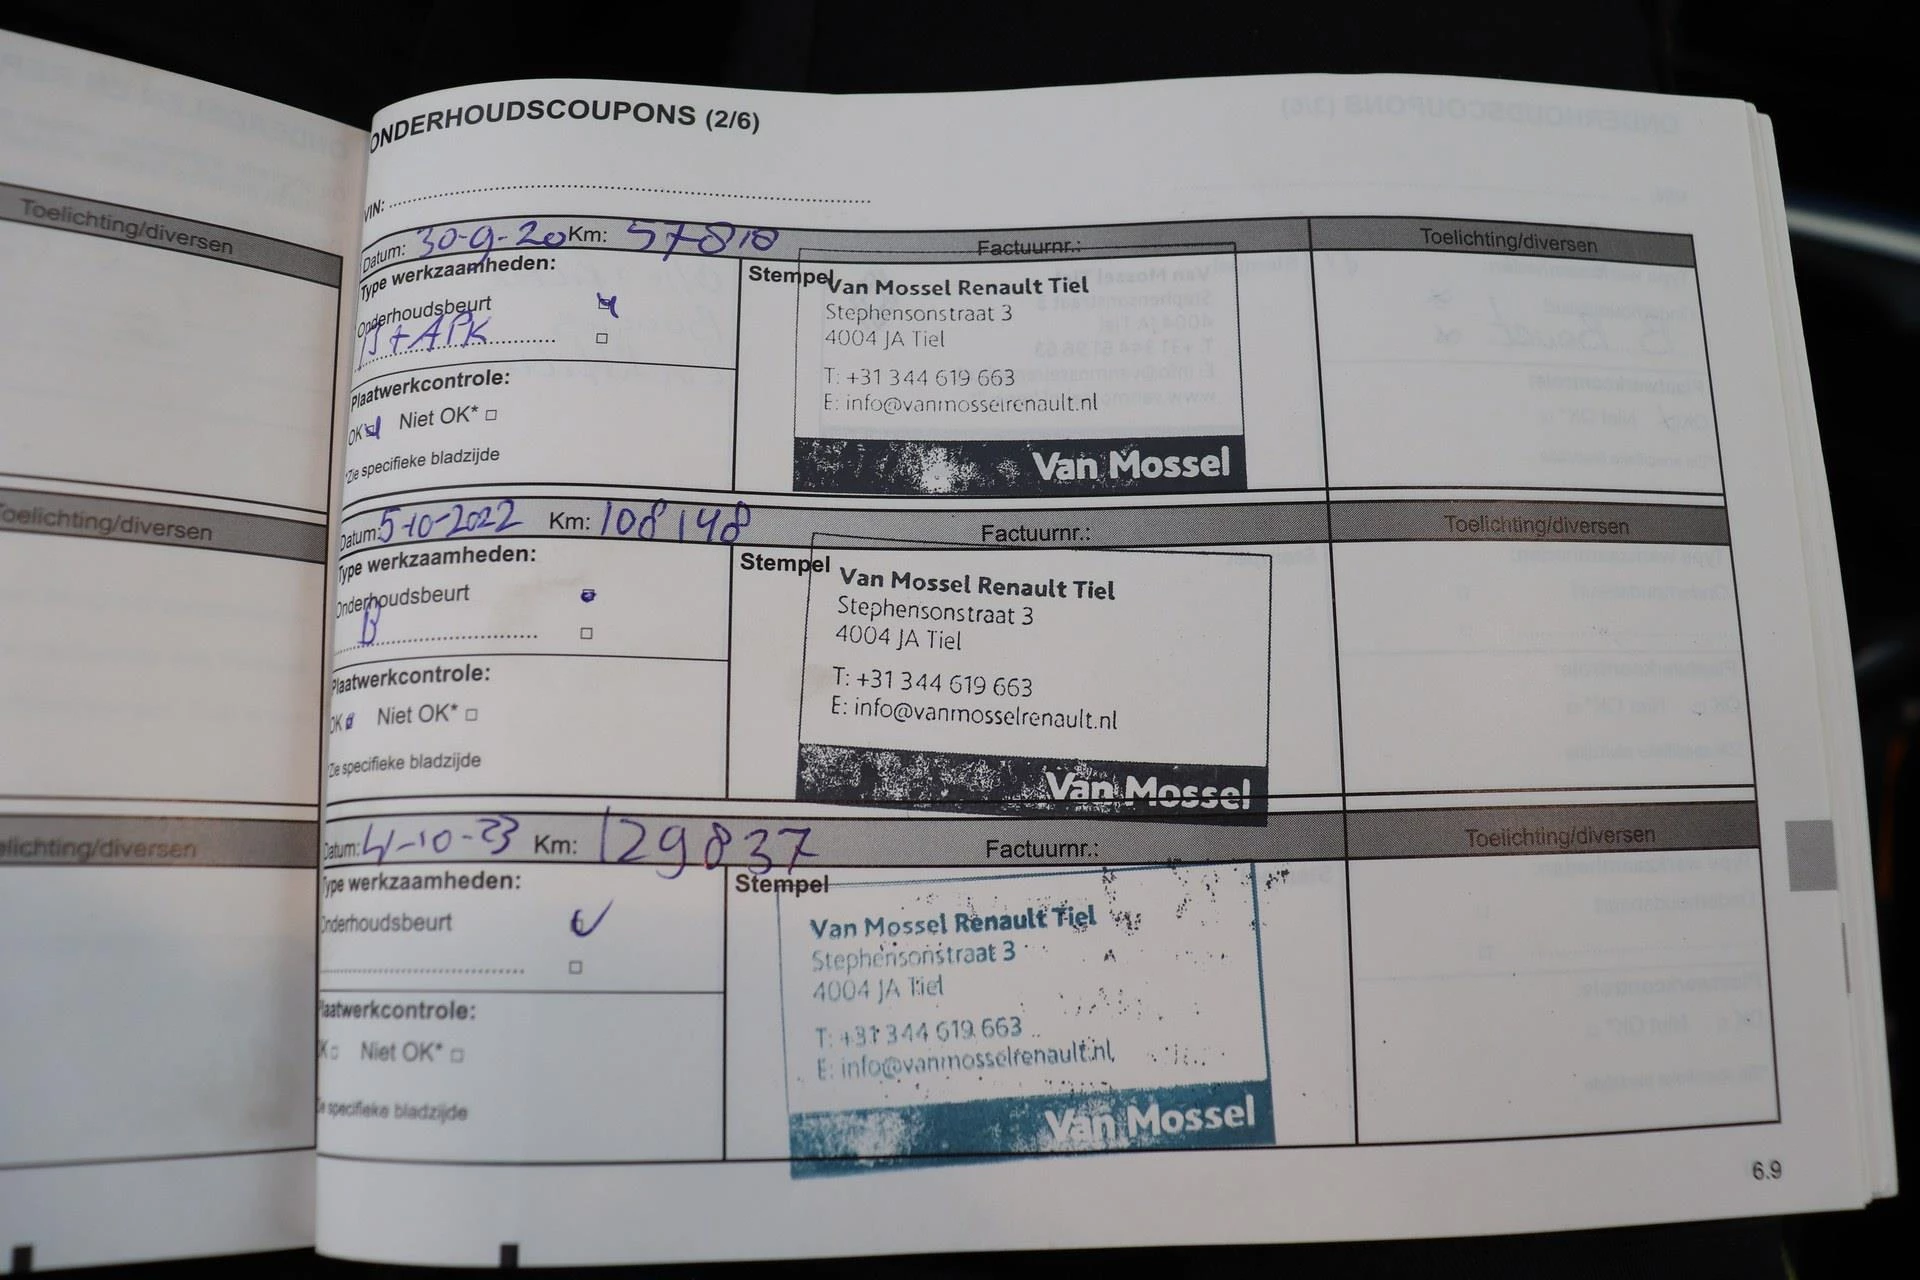 ONDERHOUDSCOUPONS (2/6)
VIN:
Toelichting/diversen
Datum: 30-9-20 Km: 57810 Factuurnr.: Toelichting/diversen
Type werkzaamheden:
Onderhoudsbeurt
B + APK
Plaatwerkcontrole:
OK Niet OK*
*Zie specifieke bladzijde
Stempel
Van Mossel Renault Tiel
Stephensonstraat 3
4004 JA Tiel
T: +31 344 619 663
E: info@vanmosselrenault.nl
Van Mossel
Toelichting/diversen
Datum: 5-10-2022 Km: 108148 Factuurnr.: Toelichting/diversen
Type werkzaamheden:
Onderhoudsbeurt
B
Plaatwerkcontrole:
OK Niet OK*
*Zie specifieke bladzijde
Stempel
Van Mossel Renault Tiel
Stephensonstraat 3
4004 JA Tiel
T: +31 344 619 663
E: info@vanmosselrenault.nl
Van Mossel
elichting/diversen
Datum: 4-10-23 Km: 129837 Factuurnr.: Toelichting/diversen
Type werkzaamheden:
Onderhoudsbeurt
Plaatwerkcontrole:
K Niet OK*
Zie specifieke bladzijde
Stempel
Van Mossel Renault Tiel
Stephensonstraat 3
4004 JA Tiel
T: +31 344 619 663
E: info@vanmosselrenault.nl
Van Mossel
6.9